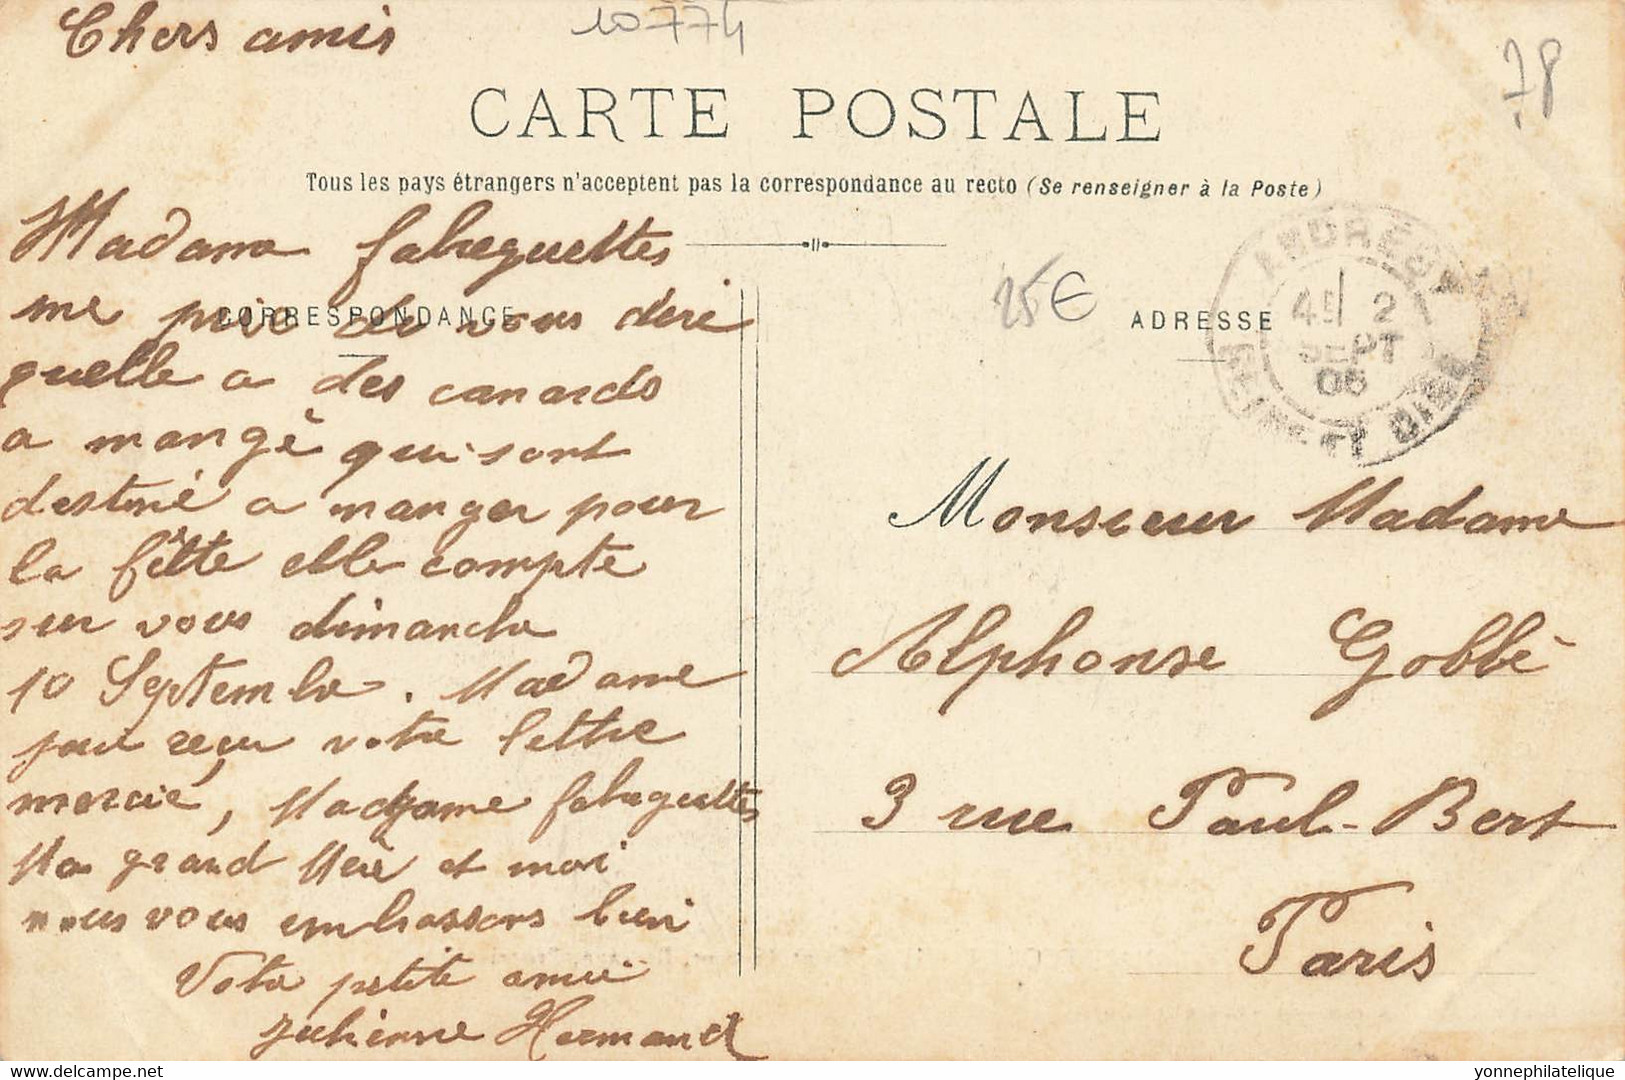 Chers amis
10774
78
CARTE POSTALE
Tous les pays étrangers n'acceptent pas la correspondance au recto (Se renseigner à la Poste)
Madame fabreguettes
CORRESPONDANCE
me prie de vous dire
quelle a des canards
a mangé qui sont
destiné a manger pour
la fêtte elle compte
sur vous dimanche
10 Septembre. Madame
jai reçu votre lettre
mercie, Madame fabreguettes
Ma grand Mère et moi
nous vous embrassons bien
Votre petite amie
Julienne Hermand
25€
ADRESSE
ANDRÉSY
2
SEPT
05
SEINE-ET-OISE
Monsieur Madame
Alphonse Gobbé
3 rue Paul-Bert
Paris
Delcampe.net
yonnephilatelique